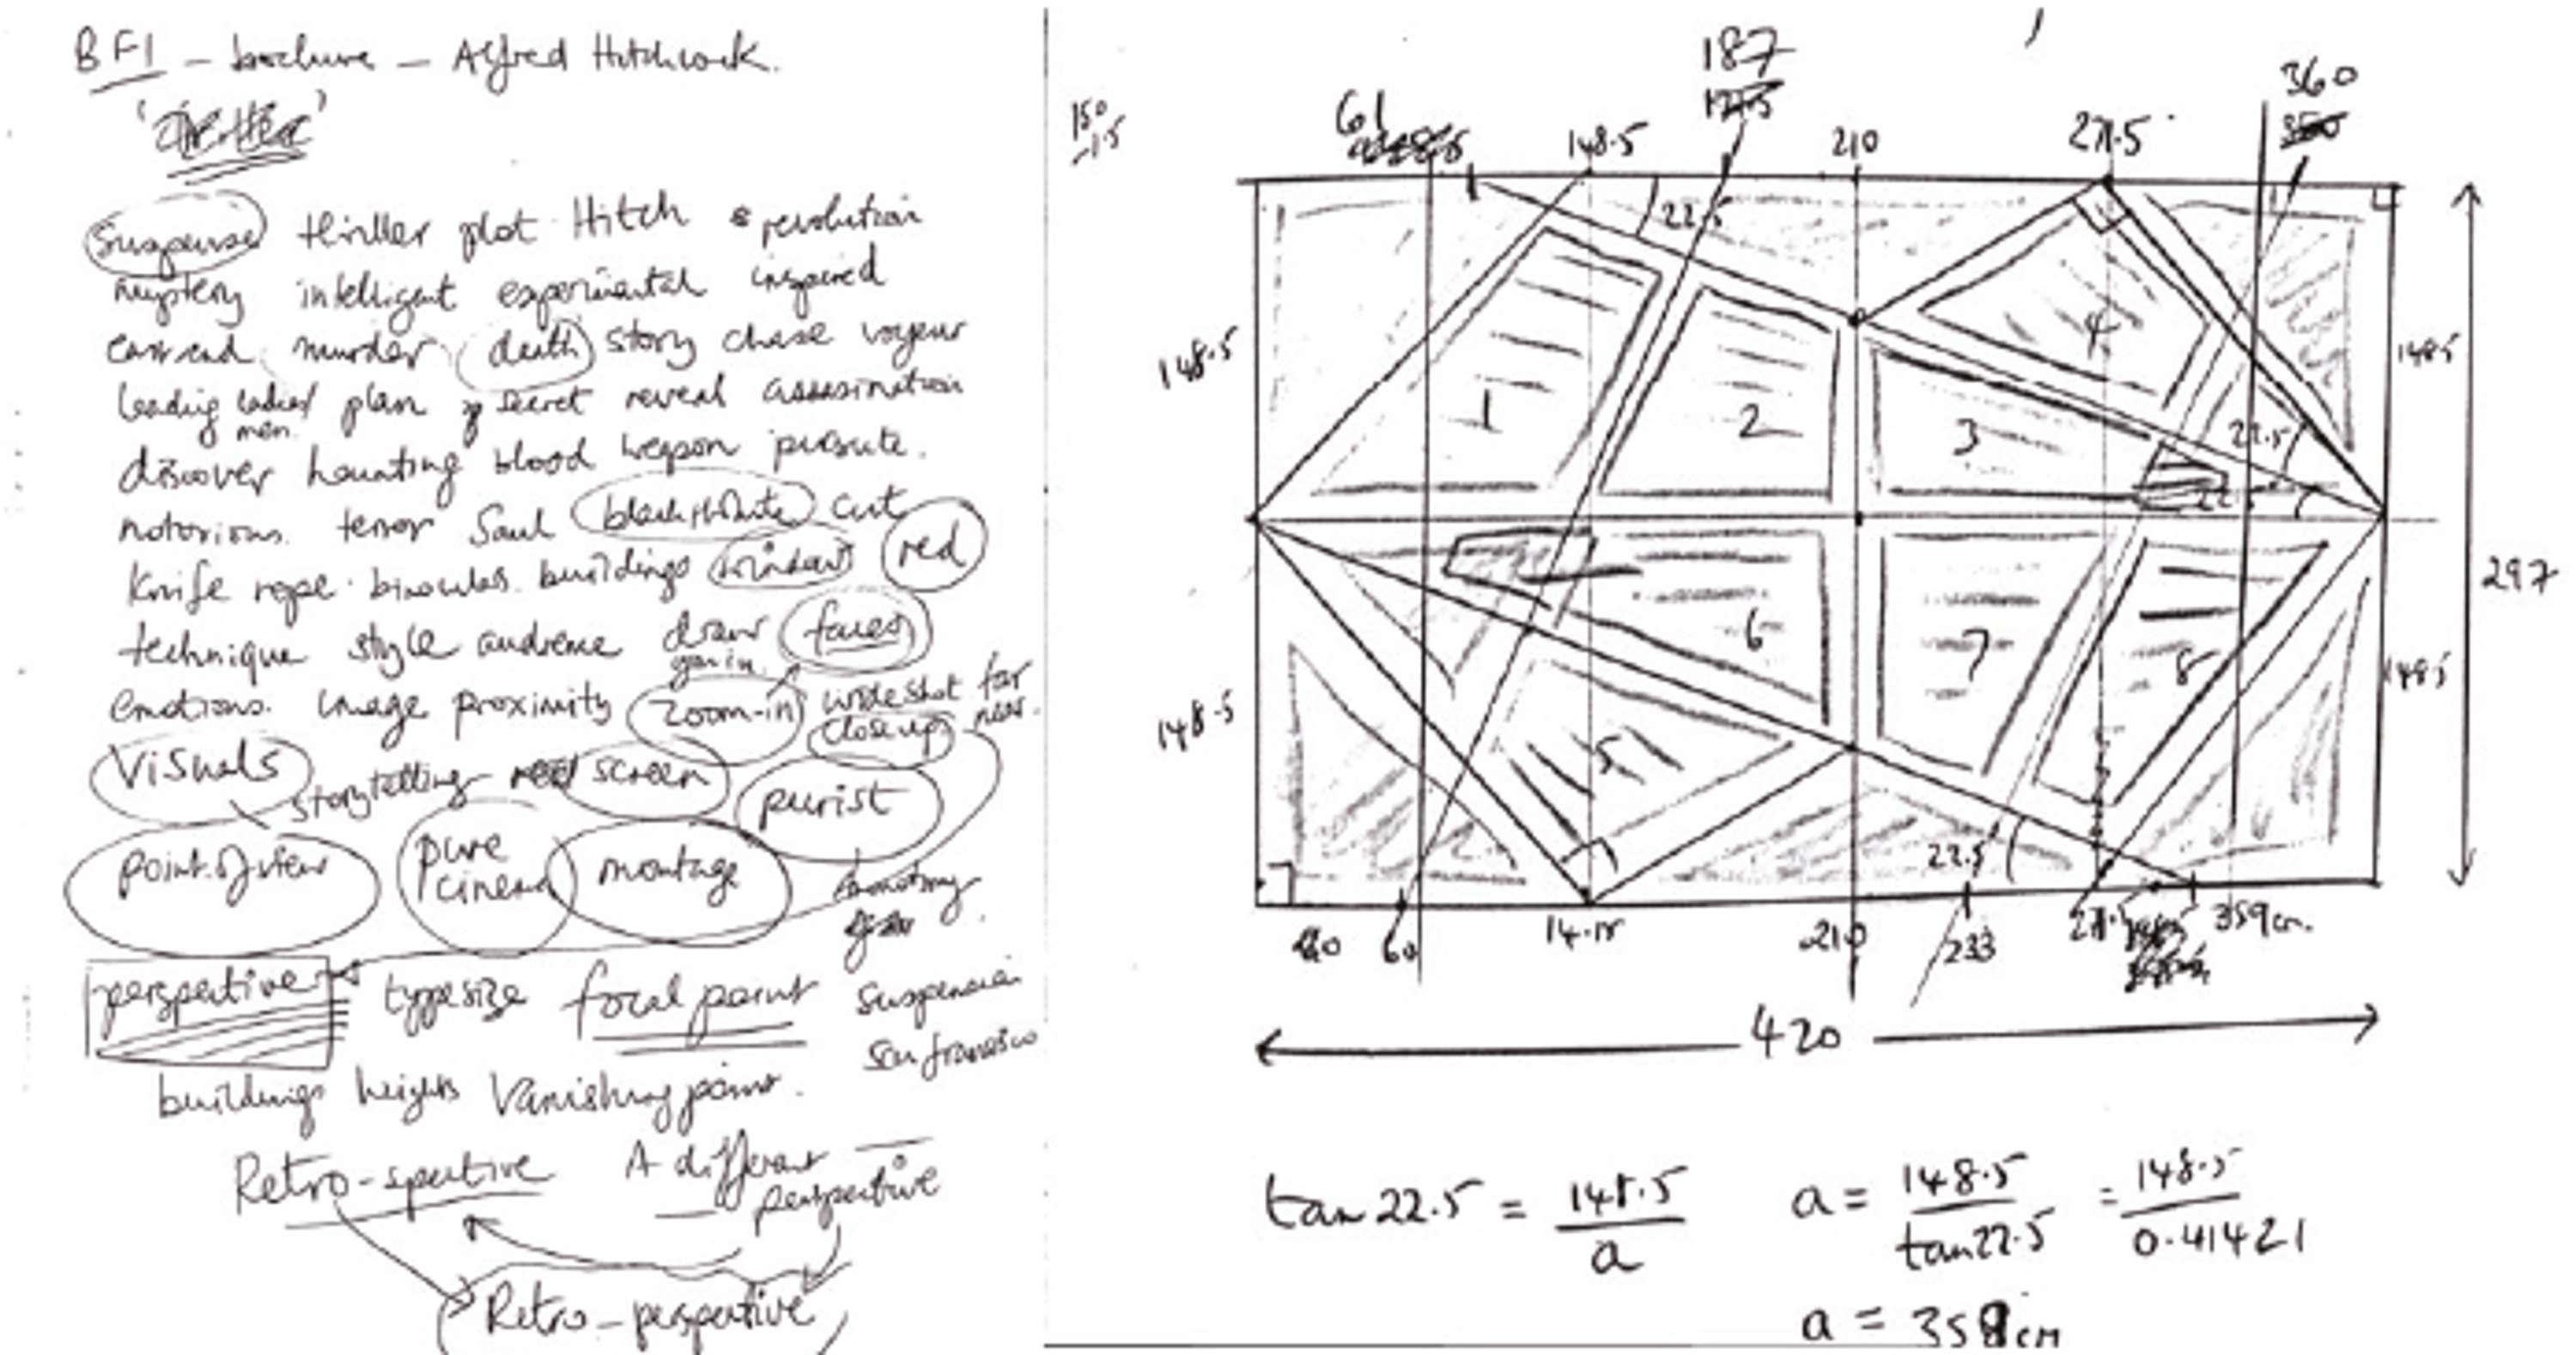 BFI – brochure – Alfred Hitchcock.
Suspense thriller plot Hitch revolution
mystery intelligent experimental inspired
murder death story chase voyeur
leading ladies men plan secret reveal assasination
discover haunting blood weapon pursute.
notorious terror Saul black+white cut
Knife rope binoculas buildings window red
technique style audience draw faces
emotions. image proximity zoom-in wide shot far
close up near.
Visuals storytelling reel screen purist
point of view pure cinema montage
perspective typesize focal point
buildings heights Vanishing point. San fransisco
Retro-spective A different perspective
Retro-perspective
150
-1.5
61
148.5
187
210
271.5
360
22.5
148.5
148.5
1
2
3
4
22.5
22.5
297
148.5
148.5
5
6
7
8
22.5
60
14.15
210
233
359cm.
420
tan 22.5 = 148.5 / a
a = 148.5 / tan 22.5 = 148.5 / 0.41421
a = 358cm